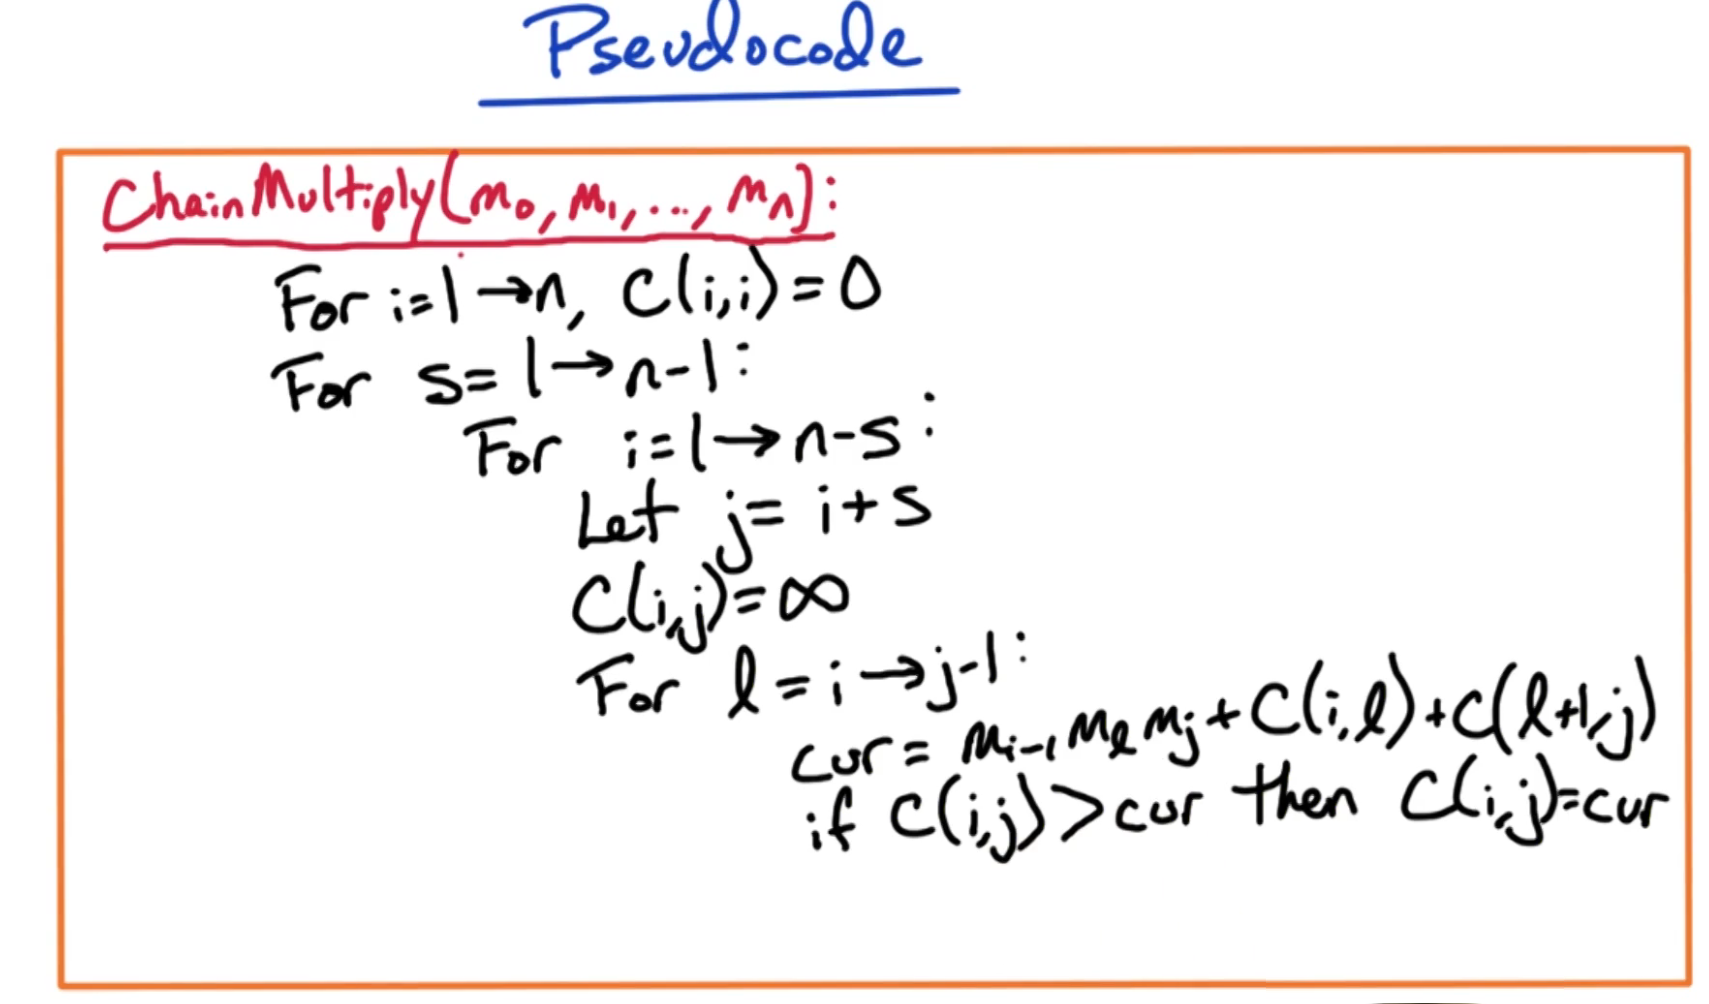 Pseudocode
ChainMultiply(m₀, m₁, ..., mₙ):
For i=1→n, C(i,i)=0
For s=1→n-1:
For i=1→n-s:
Let j=i+s
C(i,j)=∞
For l=i→j-1:
cur= mᵢ₋₁ mₗ mⱼ + C(i,l)+C(l+1,j)
if C(i,j)>cur then C(i,j)=cur